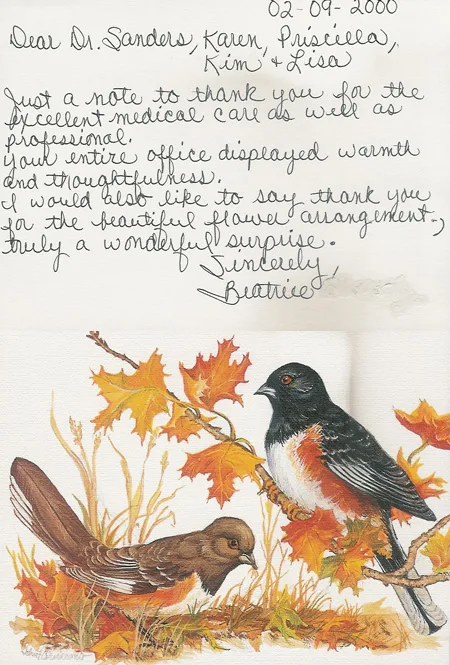 02-09-2000
Dear Dr. Sanders, Karen, Priscilla,
Kim & Lisa
Just a note to thank you for the
excellent medical care as well as
professional.
Your entire office displayed warmth
and thoughtfulness.
I would also like to say thank you
for the beautiful flower arrangement,
truly a wonderful surprise.
Sincerely,
Beatrice